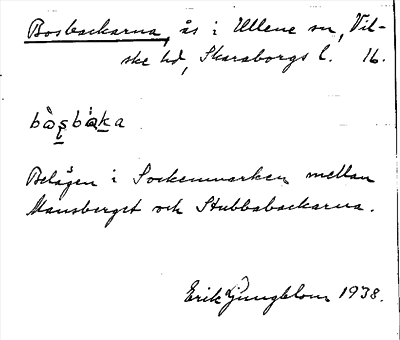 Bosbackarna, ås i Ullene sn, Vil-
ske hd, Skaraborgs l. 16.
Belägen i Sockenmarken mellan
Mansberget och Stubbabackarna.
Erik Ljungblom 1938.